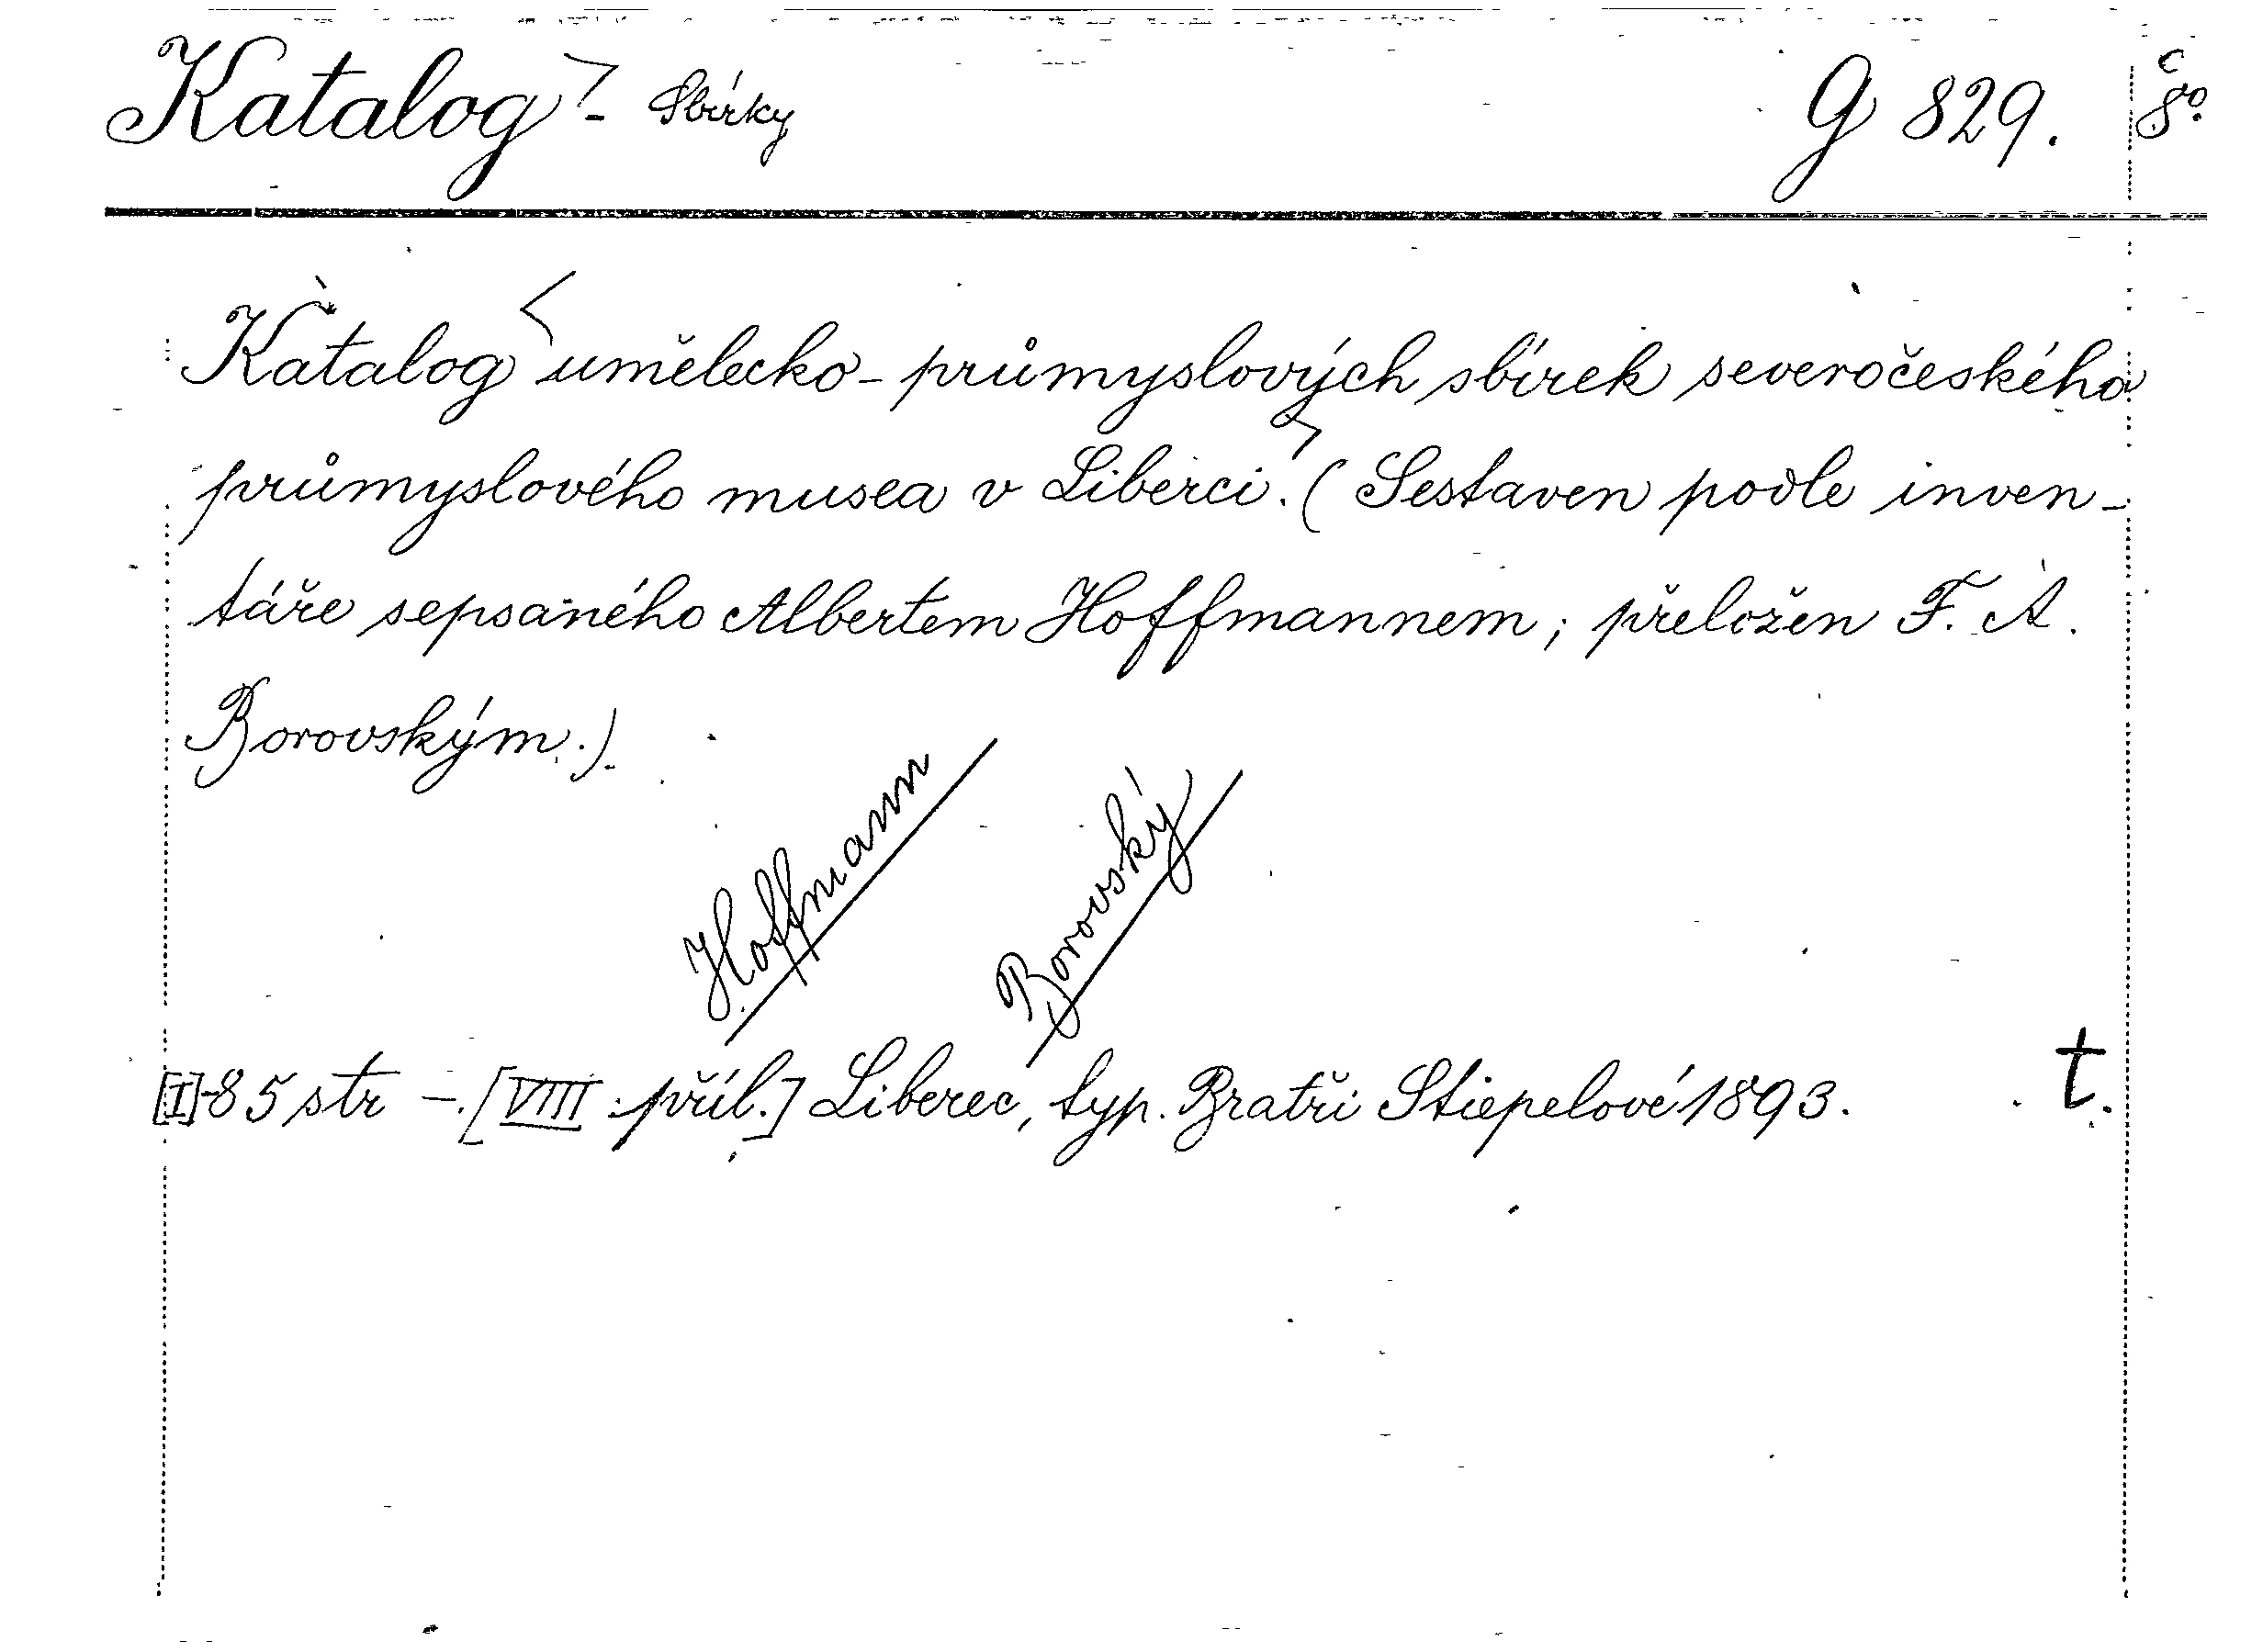 Katalog - Sbírky G 829. 8°
Katalog umělecko-průmyslových sbírek severočeského
průmyslového musea v Liberci. (Sestaven podle inven-
táře sepsaného Albertem Hoffmannem; přeložen F. A.
Borovským.)
Hoffmann Borovský
[I]-85 str -. [VIII příl.] Liberec, typ. Bratři Stiepelové 1893. t.